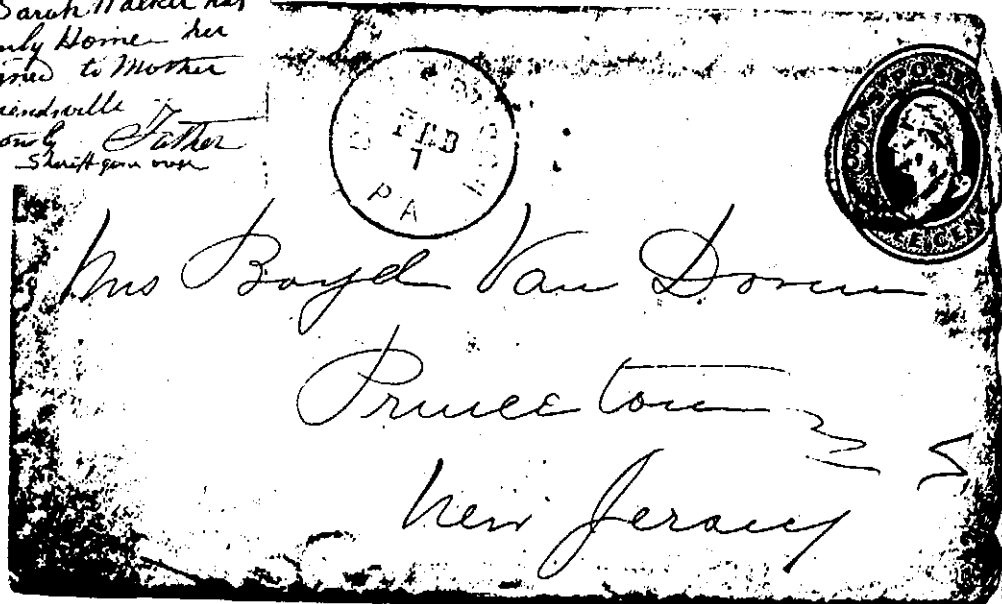 Sarah Walker has
Home her
to Mother
Father
Sheriff gone over
FEB
7
PA
U.S. POSTA
Mrs Boyd Van Doren
Princeton
New Jersey